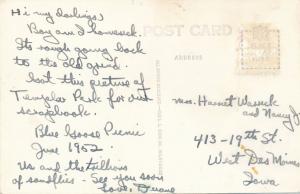 Hi my darlings,
Boy am I homesick.
It's rough going back
to the old grind.
Got this picture of
Templar Park for our
scrapbook.
Blue Goose Picnic
June 1952
Us and the trillions
of sandflies - See you soon
Love, Duane
POST CARD
Mrs. Harriet Wassick
and Nancy J.
413-19th St.
West Des Moines
Iowa